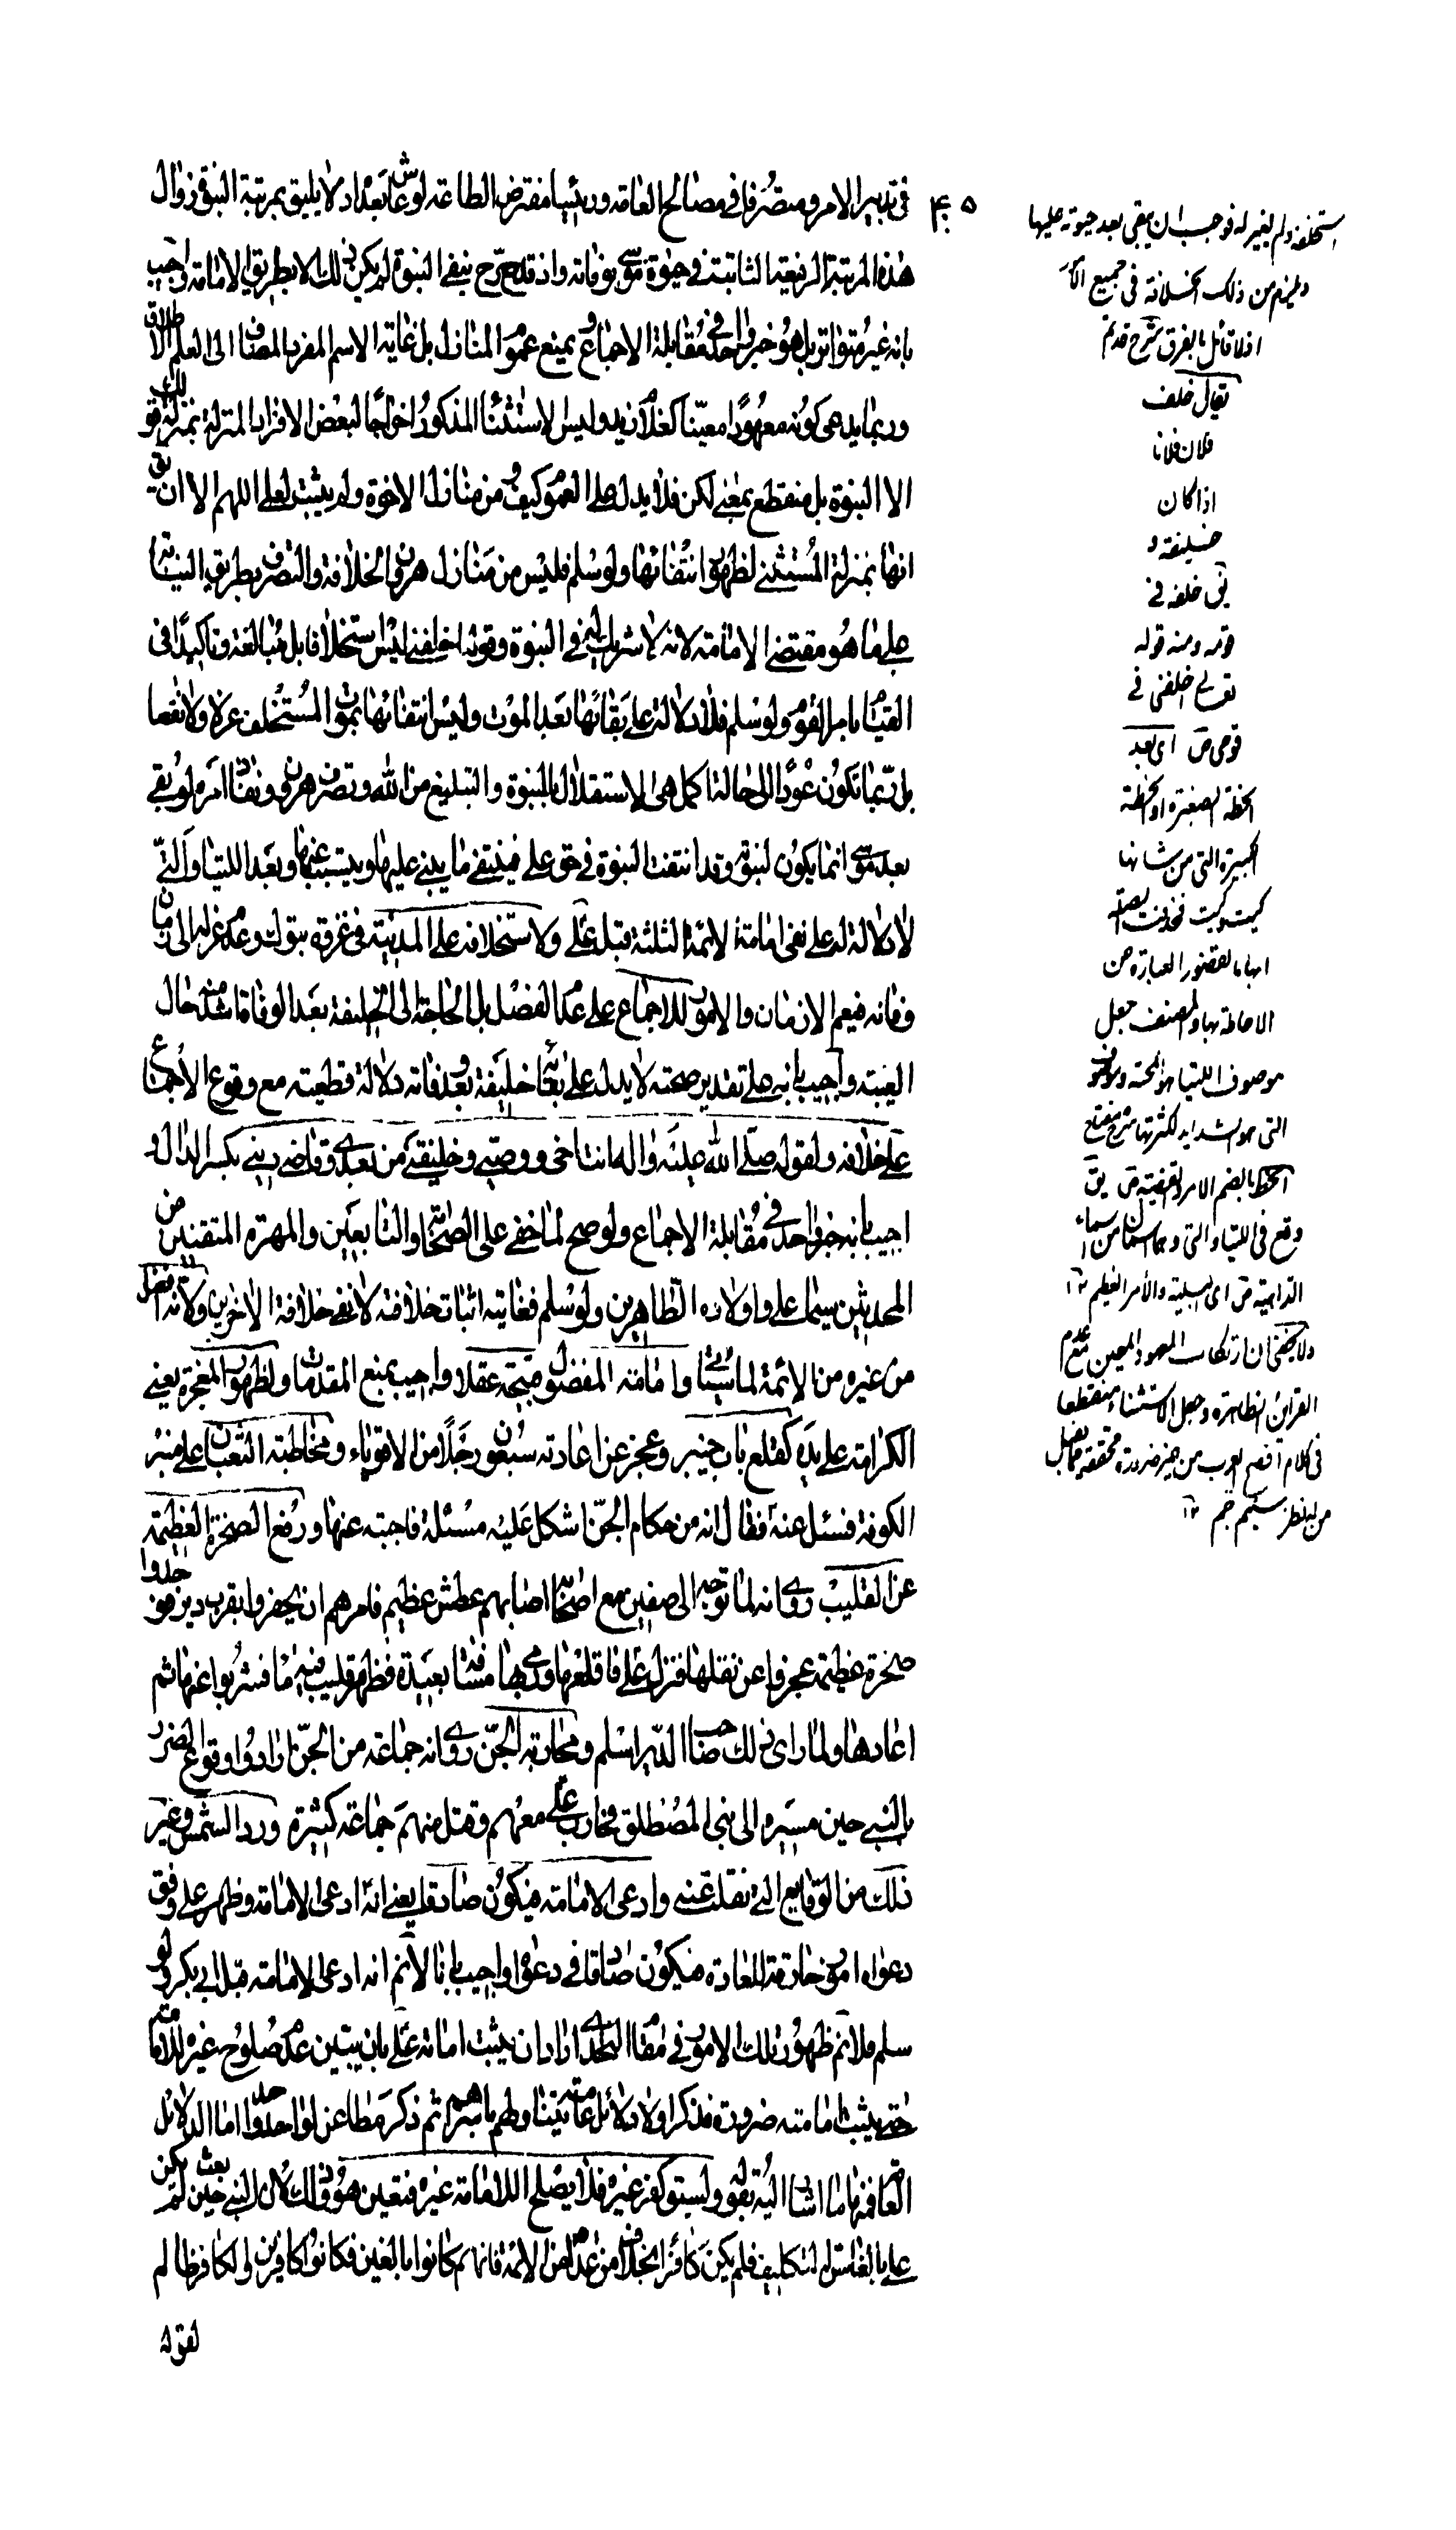 فى تدبير الامر ومتصرفا فى مصالح العامه ورئيسا مفترض الطاعه لو عاش بعده اذ لا يليق بمرتبة النبوة زوال
هذه المرتبة الرفيعة الثابتة فى حيوة موسى بوفاته واذ قد صرح بنفى النبوة لم يكن ذلك الا بطريق الامامة واجيب
بانه غير متواتر بل هو خبر واحد فى مقابلة الاجماع وبمنع عموم المنازل بل غاية الاسم المفرد المضاف الى العلم الاطلاق
وربما يدعى كونه معهودا معينا كغلام زيد وليس الاستثناء المذكور اخراجا لبعض الافراد المنزلة بمنزلة قولك
الا النبوة بل منقطع بمعنى لكن فلا يدل على العموم كيف ومن منازله الاخوة ولم يثبت لعلى اللهم الا ان يق
انها بمنزلة المستثنى لظهور انتفائها ولو سلم فليس من منازل هرون الخلافة والتصرف بطريق النيابة
على ما هو مقتضى الامامة لانه شريك له فى النبوة وقوله اخلفنى ليس استخلافا بل مبالغة وتاكيدا فى
القيام بامر القوم ولو سلم فلا دلالة على بقائها بعد الموت وليس انتفائها بموت المستخلف عزلا ولا نقصا
بل ربما تكون عودا الى حالة اكمل هى الاستقلال بالنبوة والتبليغ من الله وتصرف هرون ونفاذ امره لو بقى
بعد موسى انما يكون لنبوته وقد انتفت النبوة فى حق على فينتفى ما يبنى عليها ويتسبب عنها وبعد اللتيا والتى
لا دلالة له على نفى امامة الائمة الثلثة قبل على ولاستخلافه على المدينة فى غزوة تبوك وعدم عزله الى زمان
وفاته فيعم الازمان والامور للاجماع على عدم الفصل بل الحاجة الى الخليفة بعد الوفاة اشد منه حال
الغيبة واجيب بانه على تقدير صحته لا يدل على بقائه خليفة بعد وفاته دلالة قطعية مع وقوع الاجماع
على خلافه ولقوله صلى الله عليه واله انت اخى ووصيى وخليفتى من بعدى وقاضى دينى بكسر الدال و
اجيب بانه خبر واحد فى مقابلة الاجماع ولو صح لما خفى على الصحابة والتابعين والمهرة المتقنين من
المحدثين سيما على واولاده الطاهرين ولو سلم فغايته اثبات خلافته لا نفى خلافة الاخرين ولانه افضل
من غيره من الائمة لما سياتى وامامة المفضول قبيحة عقلا واجيب بمنع المقدمات ولظهور المعجزة يعنى
الكرامة على يده كقلع باب خيبر وعجز عن اعادته سبعون رجلا من الاقوياء ومخاطبة الثعبان على منبر
الكوفة فسئل عنه فقال انه من حكام الجن اشكل عليه مسئلة فاجبته عنها ورفع الصخرة العظيمة
عن القليب روى انه لما توجه الى صفين مع اصحابه اصابهم عطش عظيم فامرهم ان يحفروا بقرب دير فوجدوا
صخرة عظيمة عجزوا عن نقلها فنزل على فاقلعها ورمى بها مسافة بعيدة فظهر قليب فيه ماء فشربوا عنها ثم
اعادها ولما راى ذلك صاحب الدير اسلم ومحاربة الجن روى انه جماعة من الجن ارادوا وقوع الضرر
بالنبى حين مسيره الى بنى المصطلق فحارب على معهم وقتل منهم جماعة كثيرة ورد الشمس وغير
ذلك من الوقايع التى نقلت عنه وادعى الامامة فيكون صادقا يعنى انه ادعى الامامة وظهر على وفق
دعواه امور خارقة للعادة فيكون صادقا فى دعواه واجيب بانا لا نم انه ادعى الامامة قبل ابى بكر ولو
سلم فلا نم ظهور تلك الامور فى مقام التحدى اراد ان يثبت امامة على بان يبين عدم صلوح غيره للامامة
حتى يثبت امامته ضرورة فذكر اولا دلائل عامة يتناولهم باسرهم ثم ذكر مطاعن لواحد واحد اما الدلائل
العامة فمنها ما اشار اليه بقوله ولسبق كفر غيره فلا يصلح للامامة غيره فتعين هو وذلك لان النبى حين بعث لم يكن
على بالغا سن التكليف فلم يكن كافرا بخلاف من عداه من الائمة فانهم كانوا بالغين فكانوا كافرين ولكافر ظالم
لقوله
۴۰۵
استخلفه ولم يغيره فوجب ان يبقى بعد حيوته عليها
ويلزم من ذلك الخلافة فى جميع
اذ لا قائل بالفرق شرح قديم
يقال خلف
فلان فلانا
اذا كان
خليفته و
يق خلفه فى
قومه ومنه قوله
تعـ اخلفنى فى
قومى ص اى بعد
الخطة الصغيرة او الخطة
الكبيرة التى من شانها
كيت وكيت فحذفت الصلة
ايهاما لقصور العبارة عن
الاحاطة بها والمصنف جعل
موصوف اللتيا والتى
التى هو الشدايد لكثرتها شرح مفتاح
الخطة بالضم الامر والقضية ص يق
وقع فى اللتيا والتى وهما اسمان من اسماء
الداهية ص اى البلية والأمر العظيم ١٢
ولا يخفى ان ارتكاب المعهود المعين مع عدم
القرائن الظاهرة وجعل الاستثناء منقطعا
فى كلام افصح العرب من غير ضرورة
من له نظر سليم ١٢